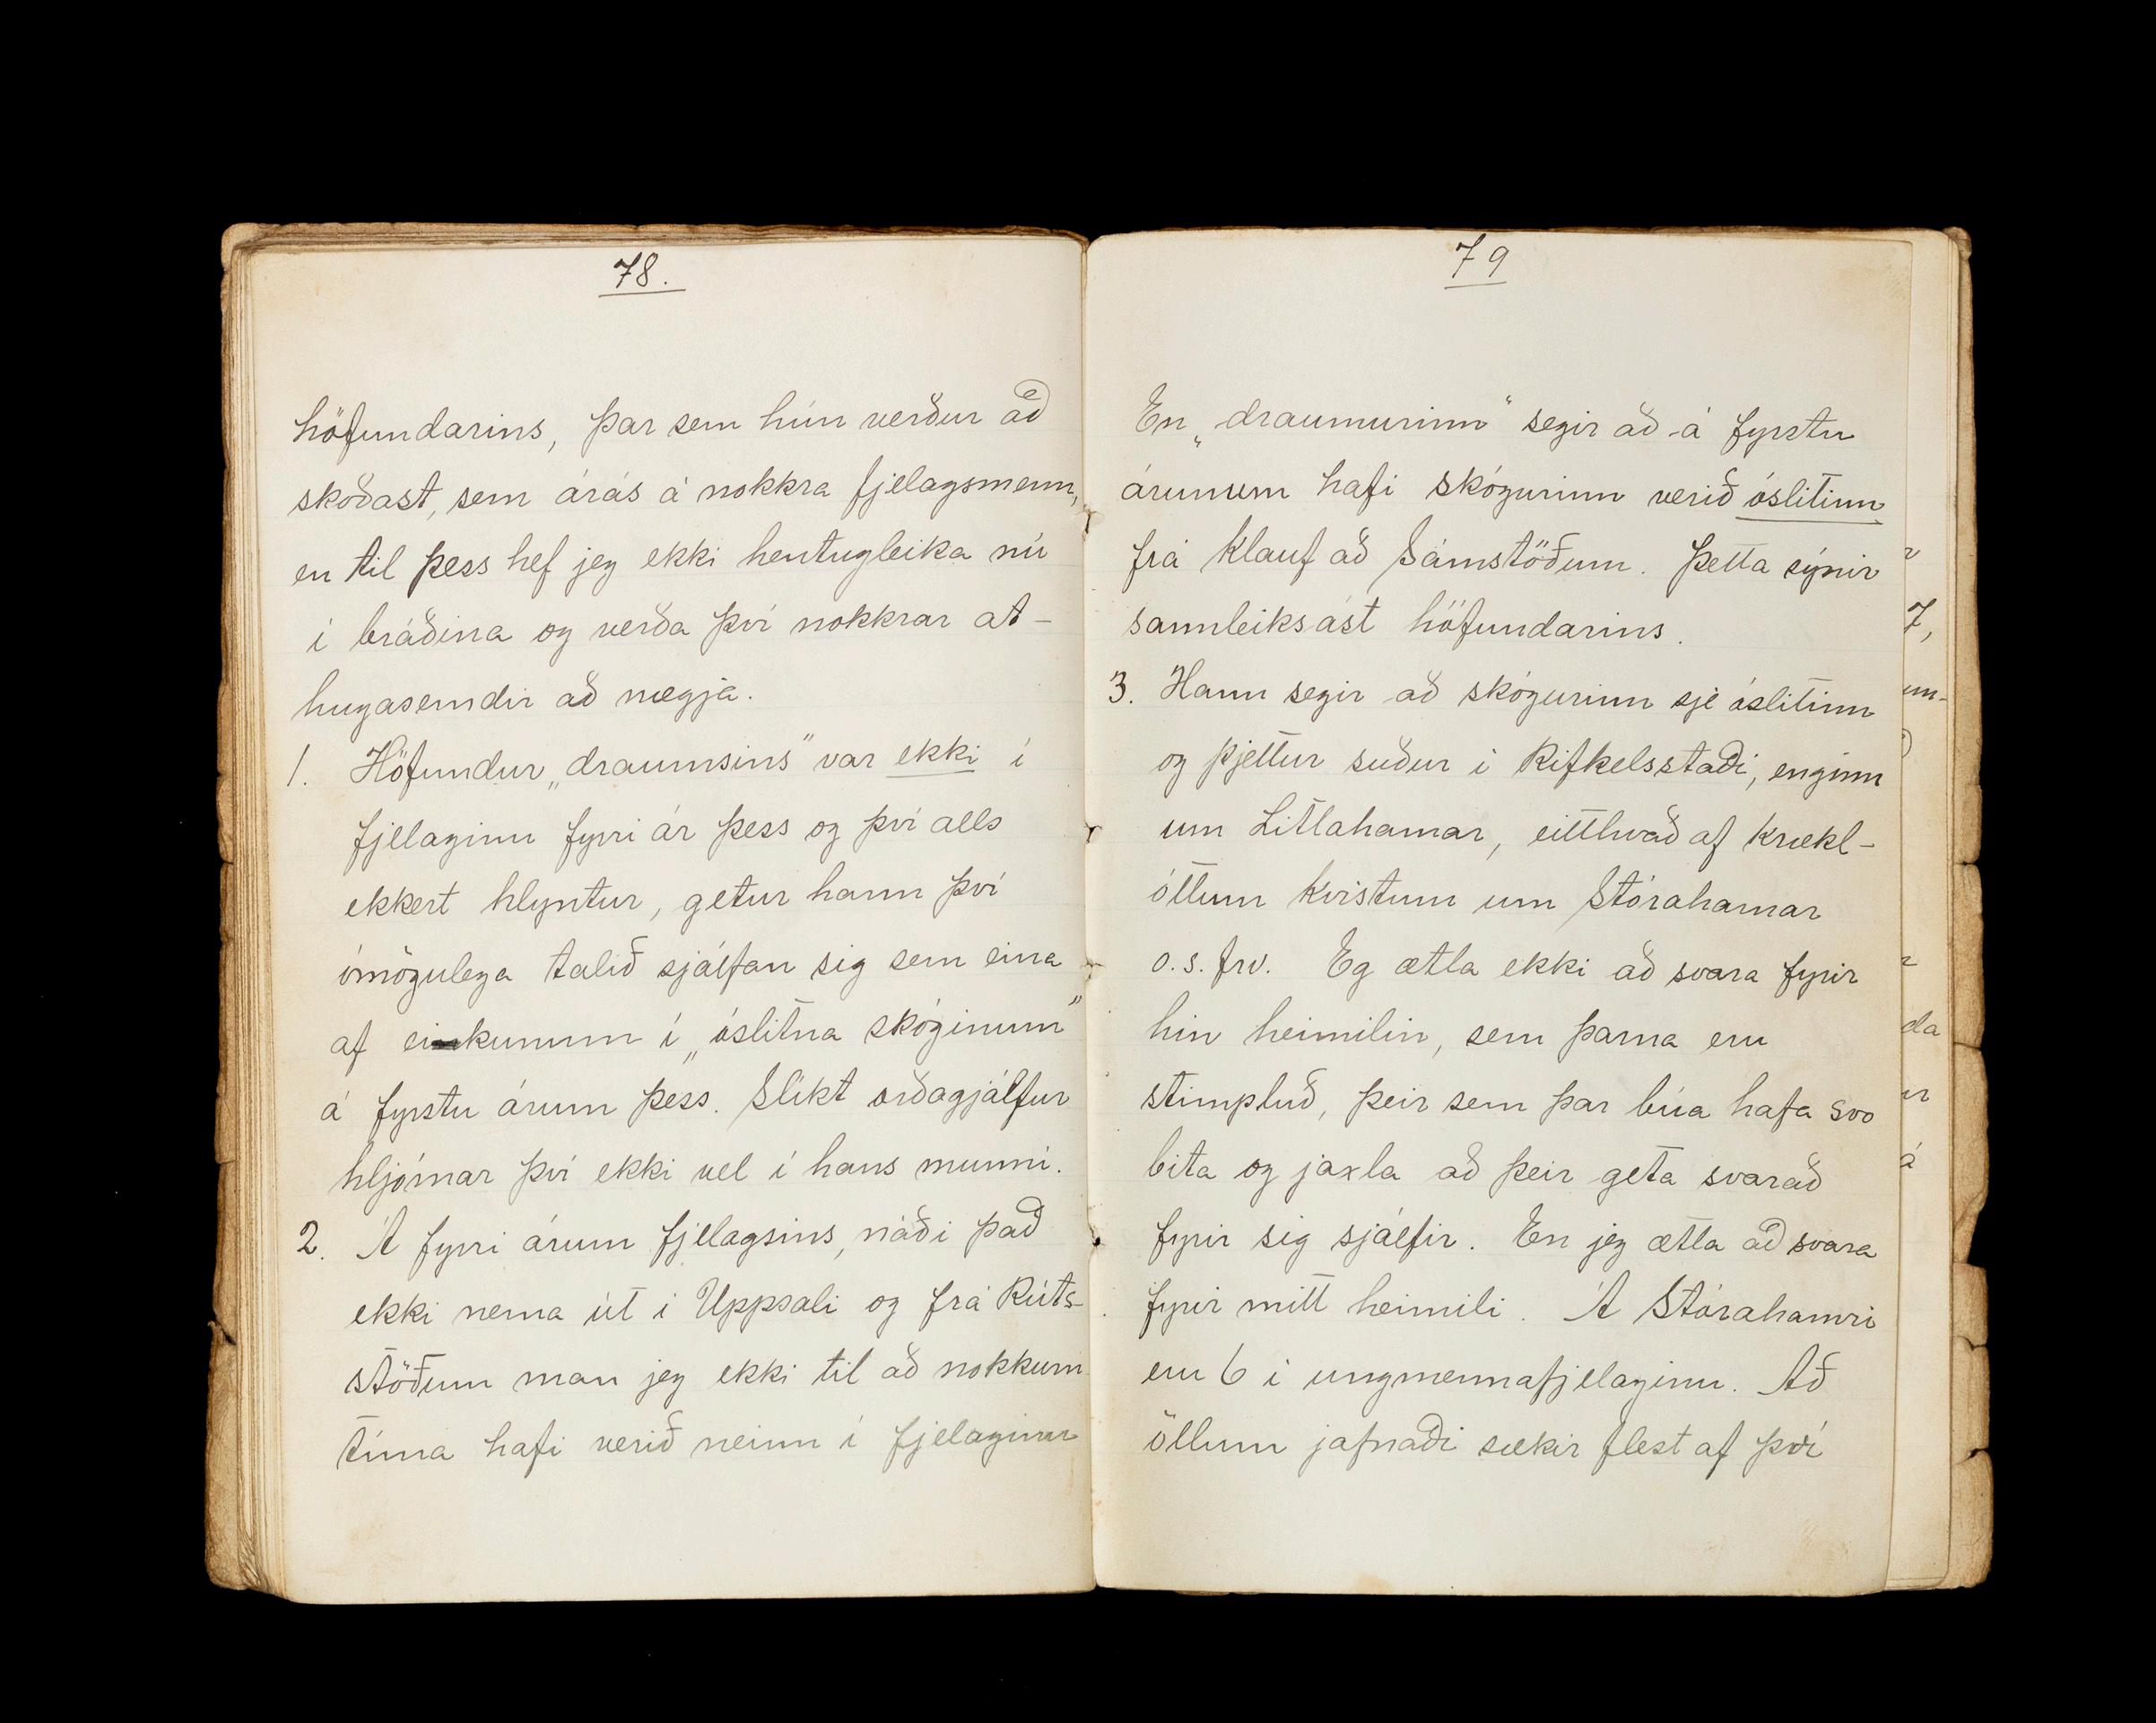 78.
höfundarins, þar sem hún verður að
skoðast, sem árás á nokkra fjelagsmenn,
en til þess hef jeg ekki hentugleika nú
í bráðina og verða því nokkrar at-
hugasemdir að nægja.
1. Höfundur „draumsins" var ekki í
fjelaginu fyrri ár þess og því alls
ekkert hlyntur, getur hann því
ómögulega talið sjálfan sig sem eina
af eikunum í „óslitna skóginum"
á fyrstu árum þess. Slíkt orðagjálfur
hljómar því ekki vel í hans munni.
2. Á fyrri árum fjelagsins, náði það
ekki nema út í Uppsali og frá Rúts-
stöðum man jeg ekki til að nokkurn
tíma hafi verið neinn í fjelaginu
79
En „draumurinn" segir að á fyrstu
árunum hafi skógurinn verið óslitinn
frá Klauf að Sámstöðum. Þetta sýnir
sannleiksást höfundarins.
3. Hann segir að skógurinn sje óslitinn
og þjettur suður í Rifkelsstaði, enginn
um Litlahamar, eitthvað af krækl-
óttum kvistum um Stórahamar
o.s.frv. Eg ætla ekki að svara fyrir
hin heimilin, sem þarna eru
stimpluð, þeir sem þar búa hafa svo
bita og jaxla að þeir geta svarað
fyrir sig sjálfir. En jeg ætla að svara
fyrir mitt heimili. Á Stórahamri
eru 6 í ungmennafjelaginu. Að
öllum jafnaði sækir flest af því